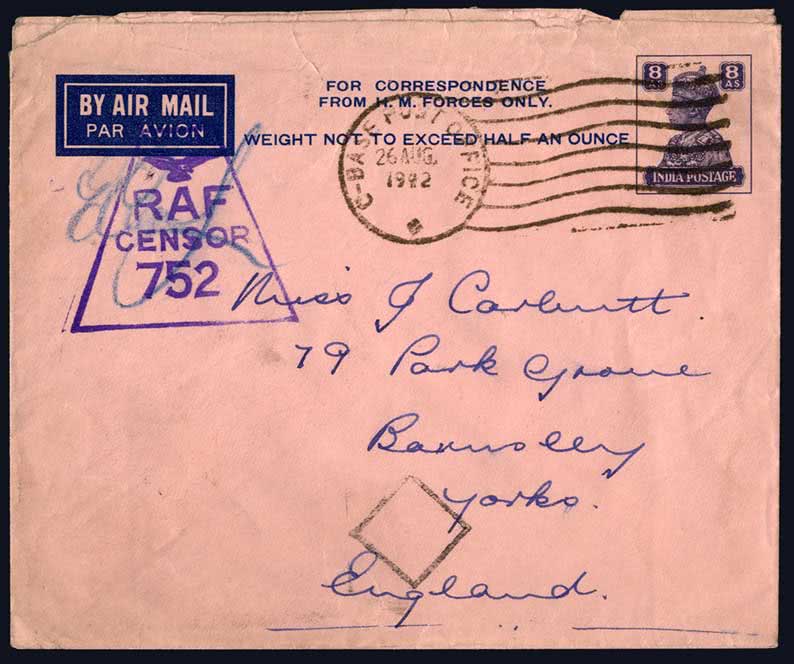 BY AIR MAIL
PAR AVION
FOR CORRESPONDENCE
FROM H.M. FORCES ONLY.
WEIGHT NOT TO EXCEED HALF AN OUNCE
8 AS 8 AS
INDIA POSTAGE
C-BASE POST OFFICE
26 AUG.
1942
RAF
CENSOR
752
Miss J Carbutt
79 Park Grove
Barnsley
Yorks.
England.